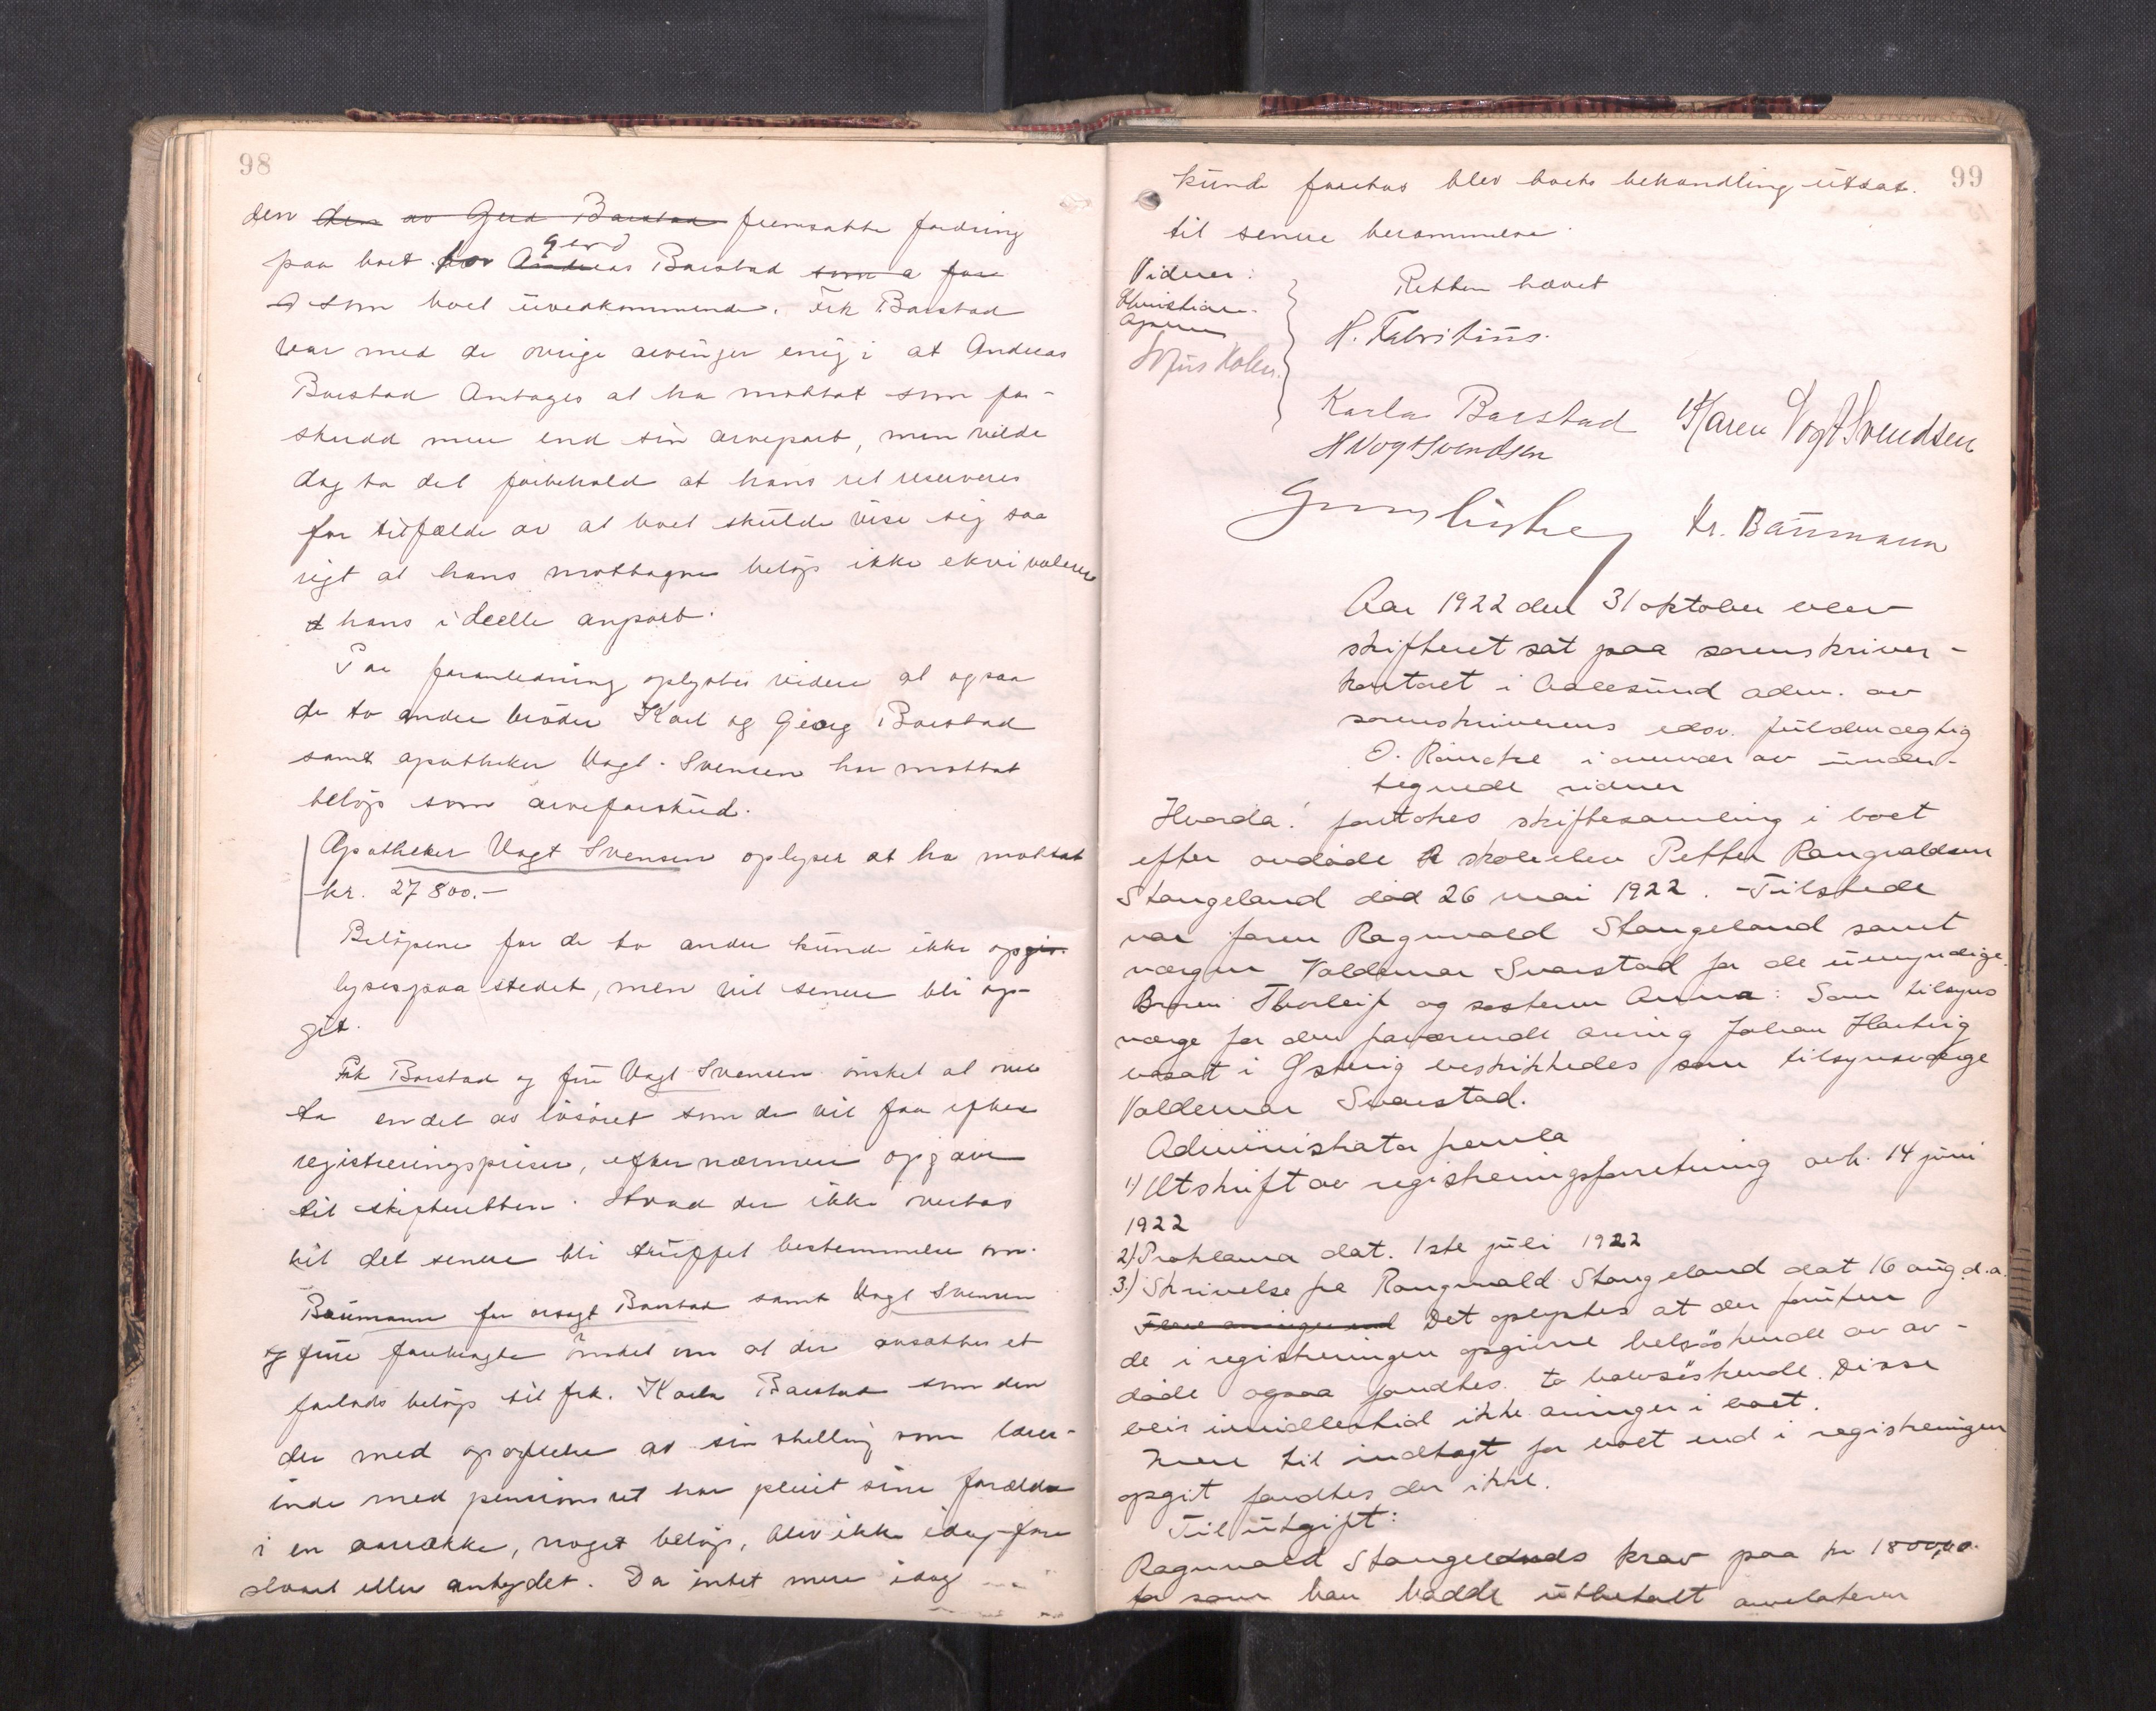 98
den den av Gerd Barstad fremsatte fordring
paa boet for Andreas Gerd Barstad som a for
som boet uvedkommende. Frk Barstad
var med de øvrige arvinger enig i at Andreas
Barstad Antages at ha mottat som for-
skudd mere end sin arvepart, men vilde
dog ta det forbehold at hans ret reserveres
for tilfælde av at boet skulde vise sig saa
rigt at hans mottagne beløp ikke ekvivalerer
hans ideelle anpart.
Paa foranledning oplystes videre at ogsaa
de to andre brödre Karl og Georg Barstad
samt apotheker Vogt-Svensen har mottat
beløp som arveforskud.
Apotheker Vogt Svensen oplyser at ha mottat
kr. 27800.-
Belöpene for de to andre kunde ikke opgis.
lyses paa stedet, men vil senere bli op-
git.
Frk Barstad og fru Vogt Svensen önsket at over
ta endel av lösöret som de vil faa efter
registreringspriser, efter nærmere opgave
til skifteretten. Hvad der ikke overtas
vil det senere bli truffet bestemmelse om.
Baumann for Barstad samt Vogt Svensen
og frue forebragte önsket om at der avsattes et
forlods beløp til frk. Karla Barstad som den
der med opofrelse av sin stilling som lærer-
inde med pensionsret har pleiet sine forældre
i en aarrække, noget belöp, blev ikke idag fore
slaaet eller antydet. Da intet mere idag
99
kunde foretas blev boets behandling utsat
til senere berammelse.
Vidner:
Christian
Retten hævet
H. Fabritius.
Karla Barstad Karen Vogt Svendsen
H Vogt Svendsen
Kr. Baumann
Aar 1922 den 31 oktober blev
skifteret sat paa sorenskriver-
kontoret i Aalesund adm. av
sorenskriverens edsv. fuldmægtig
O. i overvær av under-
tegnede vidner
Hvorda! foretokes skiftesamling i boet
efter avdøde skoleelev Petter Rangvaldsen
Stangeland død 26 mai 1922. Tilstede
var faren Ragnvald Stangeland samt
vergen Valdemar Svarstad for de umyndige
Broren Thorleif og søsteren Anna: Som tilsyns
verge for den fraværende arving Johan Hartvig
bosat i Østerrig beskikkedes som tilsynsverge
Valdemar Svarstad.
Administrator fremla
1) Utskrift av registreringsforretning avh. 14 juni
1922
2) Proklama dat. 1ste juli 1922
3.) Skrivelse fra Rangvald Stangeland dat 16 aug. d.a.
Det oplystes at der foruten
de i registreringen opgivne helsöskende av av-
døde ogsaa fandtes to halvsöskende. Disse
blir imidlertid ikke arvinger i boet.
Mere til indtægt for boet end i registreringen
opgit fandtes der ikke.
Til utgift:
Ragnvald Stangelands krav paa kr 1800,00.
for som han hadde utbetalt arvelateren